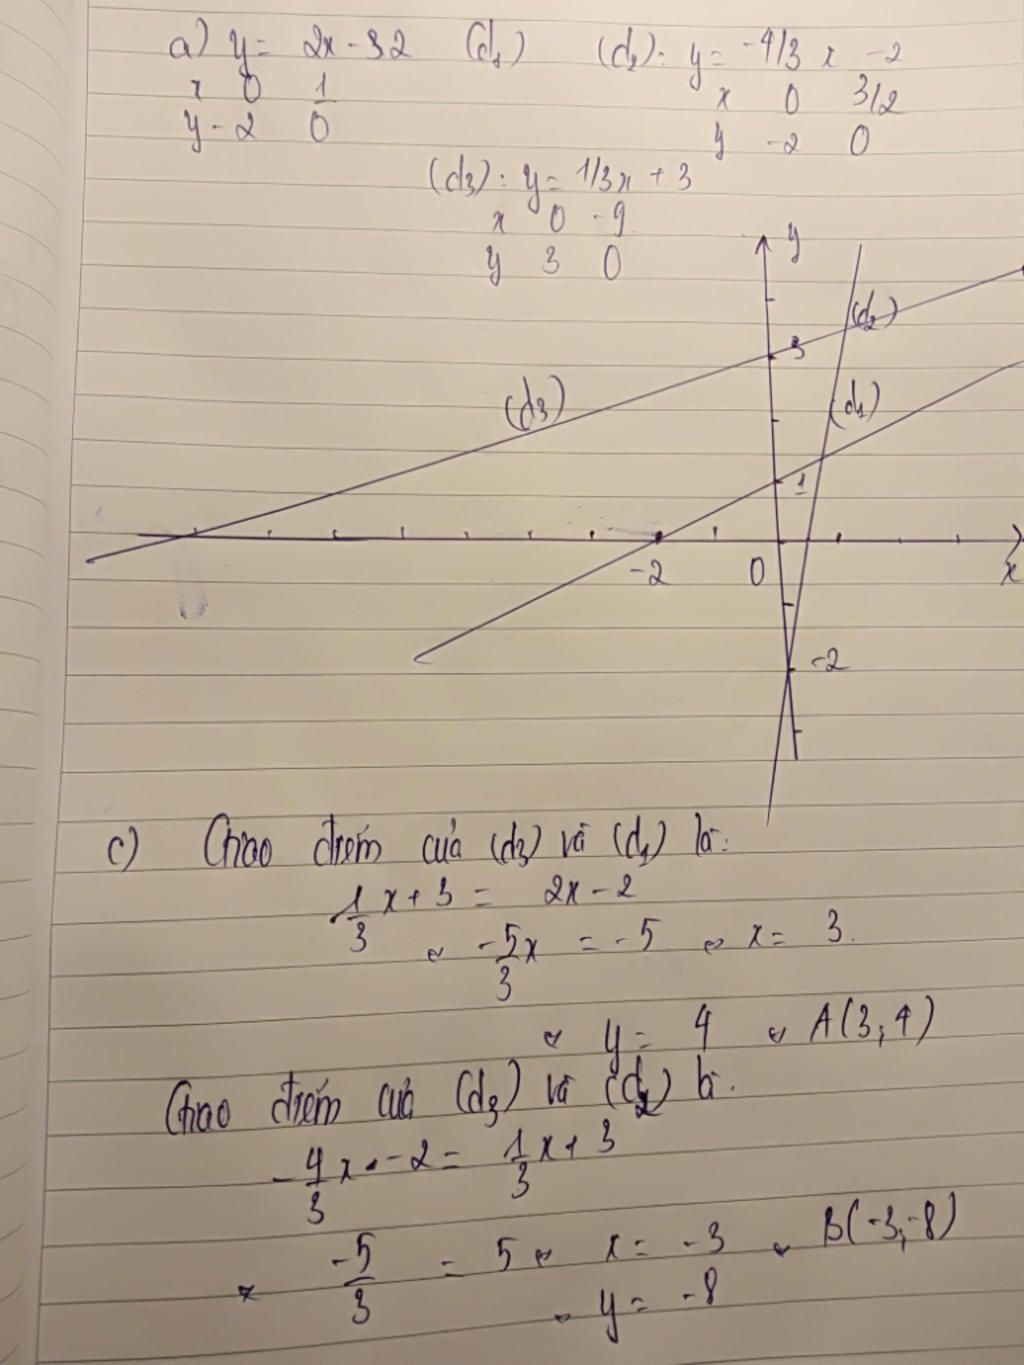 a) y = 2x - 32 (d1) (d2): y = -4/3 x -2
x 0 1 x 0 3/2
y -2 0 y -2 0
(d3): y = 1/3x + 3
x 0 -9
y 3 0
y
(d2)
3
(d3) (d1)
1
-2 0 x
-2
c) Giao điểm của (d3) và (d1) là:
1/3 x + 3 = 2x - 2
⇔ -5/3 x = -5 ⇔ x = 3.
⇔ y = 4 ⇔ A(3; 4)
Giao điểm của (d3) và (d2) là.
-4/3 x - 2 = 1/3 x + 3
⇔ -5/3 = 5 ⇔ x = -3 ⇔ B(-3; -8)
⇔ y = -8